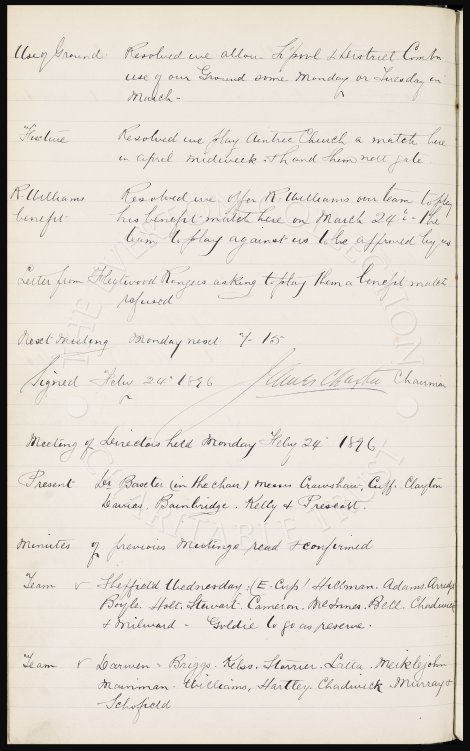 Use of Ground. Resolved we allow L'pool & District Combn
use of our Ground some Monday or Tuesday in
March -
Fixture Resolved we play Aintree Church a match here
in April midweek & hand them nett gate
R. Williams Resolved we offer R. Williams our team to play
benefit his benefit match here on March 24th - the
team to play against us to be approved by us
Letter from Fleetwood Rangers asking to play them a benefit match
refused
Next Meeting Monday next 7-15
Signed Feby 24th 1896 James Clayton Chairman
Meeting of Directors held Monday Feby 24th 1896
Present Dr Baxter (in the chair) Messrs Crawshaw, Cuff, Clayton
Davies, Bainbridge, Kelly & Prescott.
Minutes of previous Meetings read & confirmed
Team v Sheffield Wednesday. (E. Cup) Hillman. Adams. Arridge
Boyle. Holt. Stewart. Cameron. McInnes. Bell. Chadwick
& Milward - Goldie to go as reserve.
Team v Darwen - Briggs. Kelso. Storrier. Latta. Meiklejohn
Mainman. Williams, Hartley. Chadwick. Murray &
Schofield
THE EVERTON COLLECTION
CHARITABLE TRUST